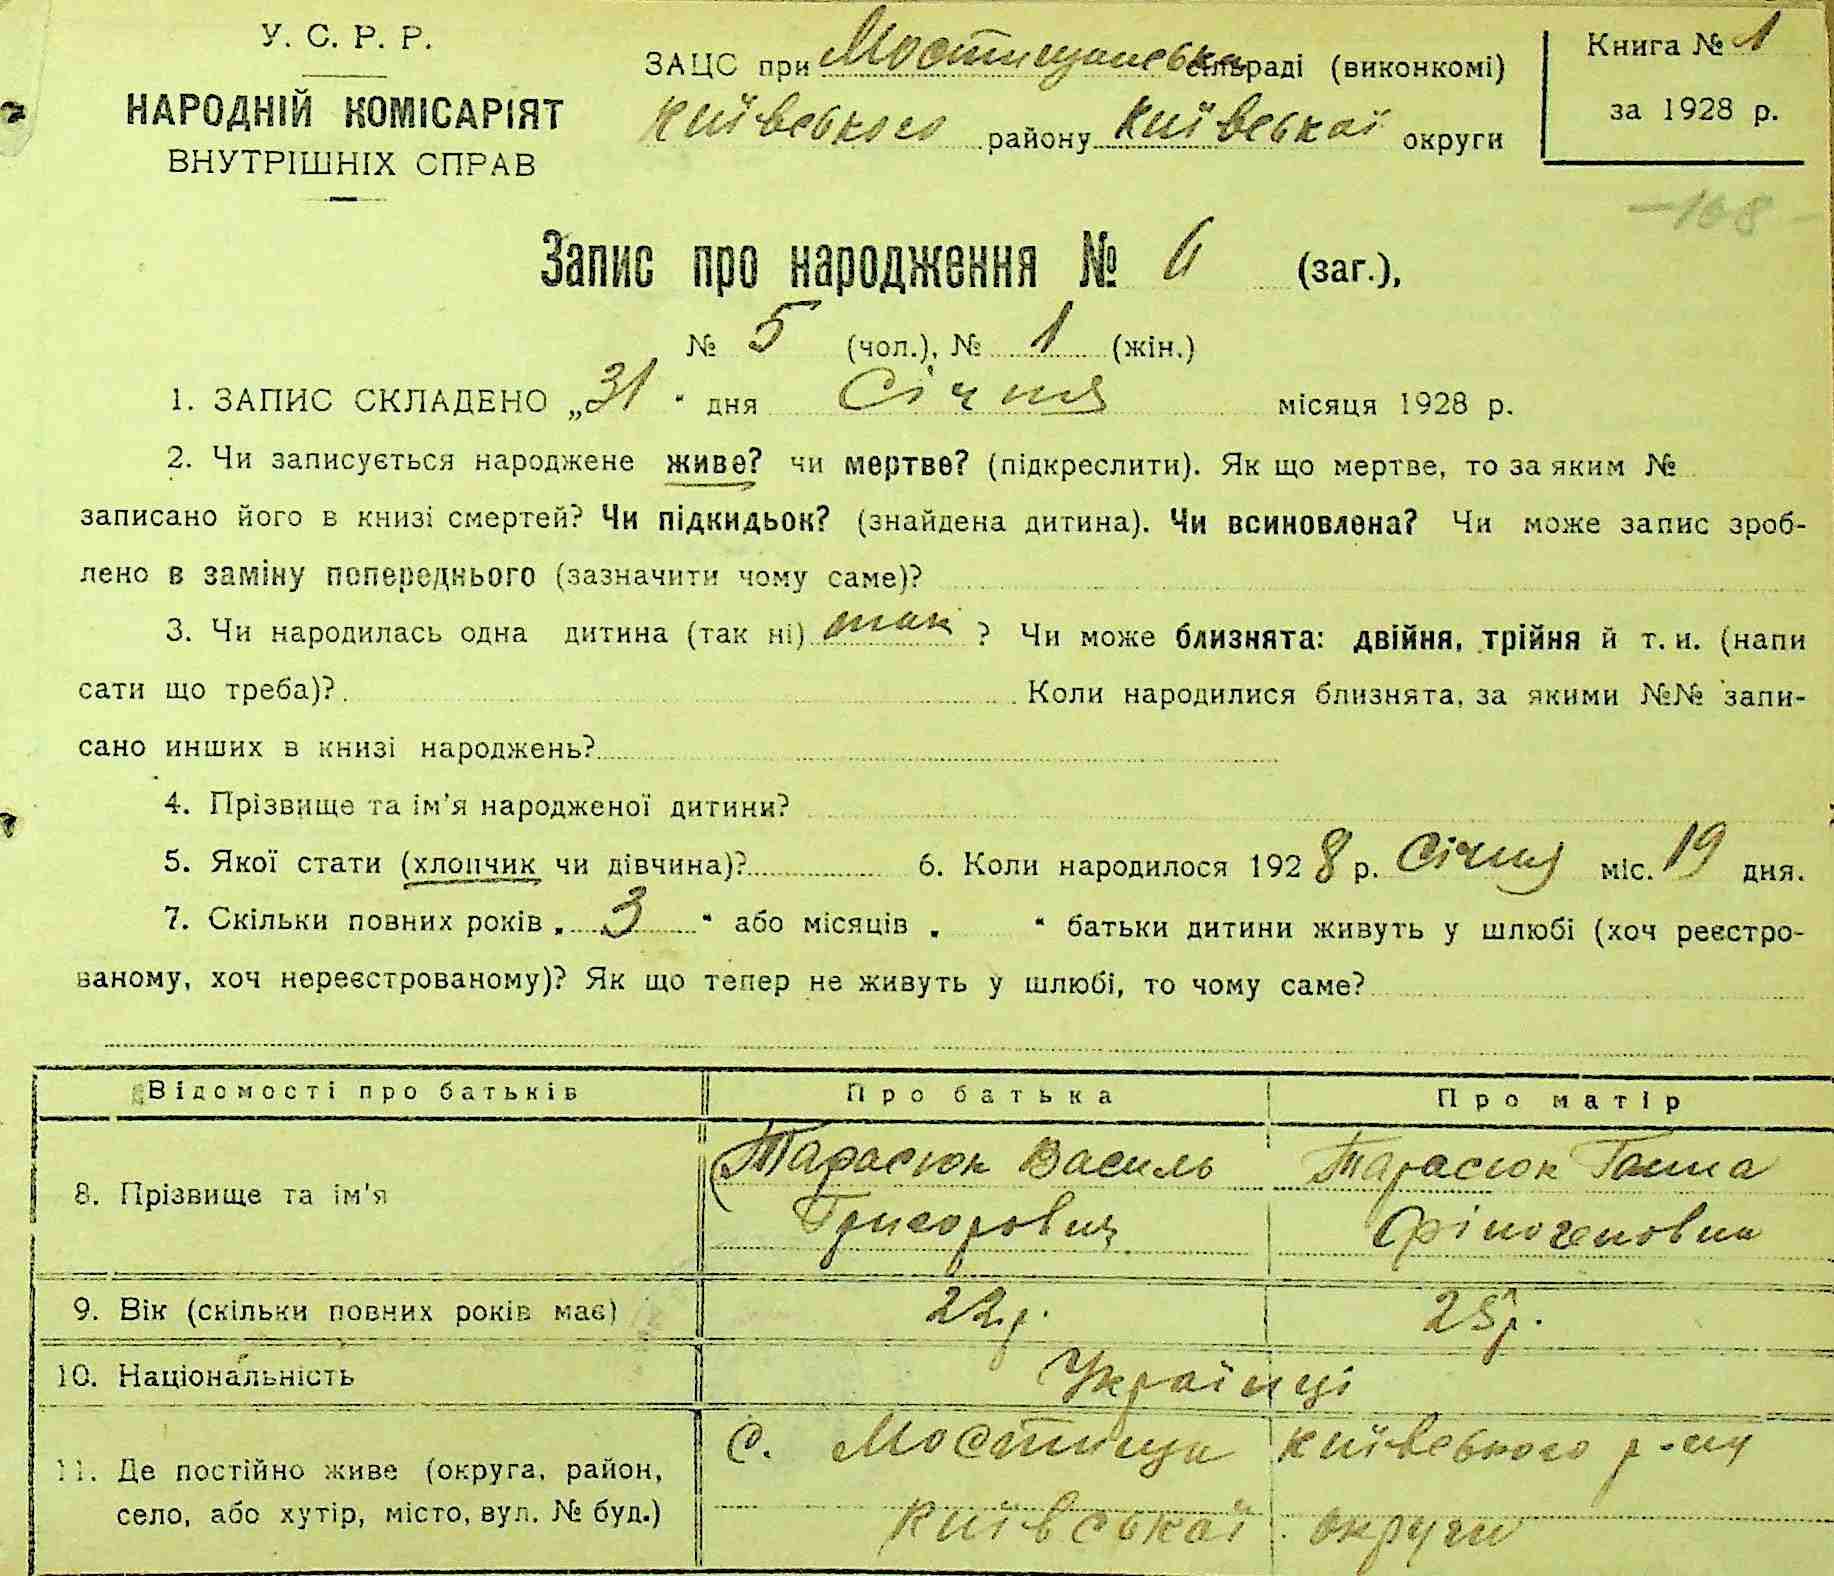 У. С. Р. Р.
НАРОДНІЙ КОМІСАРІЯТ
ВНУТРІШНІХ СПРАВ
ЗАЦС при Мостищанська сільраді (виконкомі)
Київського району Київської округи
Книга № 1
за 1928 р.
-168-
Запис про народження № 6 (заг.),
№ 5 (чол.), № 1 (жін.)
1. ЗАПИС СКЛАДЕНО „31“ дня Січня місяця 1928 р.
2. Чи записується народжене живе? чи мертве? (підкреслити). Як що мертве, то за яким №
записано його в книзі смертей? Чи підкидьок? (знайдена дитина). Чи всиновлена? Чи може запис зроб-
лено в заміну попереднього (зазначити чому саме)?
3. Чи народилась одна дитина (так ні) так ? Чи може близнята: двійня, трійня й т. и. (напи
сати що треба)? Коли народилися близнята, за якими №№ запи-
сано инших в книзі народжень?
4. Прізвище та ім'я народженої дитини?
5. Якої стати (хлопчик чи дівчина)? 6. Коли народилося 1928 р. Січня міс. 19 дня.
7. Скільки повних років „ 3 “ або місяців „ “ батьки дитини живуть у шлюбі (хоч реєстро-
ваному, хоч нереєстрованому)? Як що тепер не живуть у шлюбі, то чому саме?
Відомості про батьків Про батька Про матір
8. Прізвище та ім'я
Тарасюк Василь
Григорович
Тарасюк Ганна
9. Вік (скільки повних років має) 22 р. 25 р.
10. Національність Українці
11. Де постійно живе (округа, район,
село, або хутір, місто, вул. № буд.)
С. Мостища Київського р-ну
Київської округи